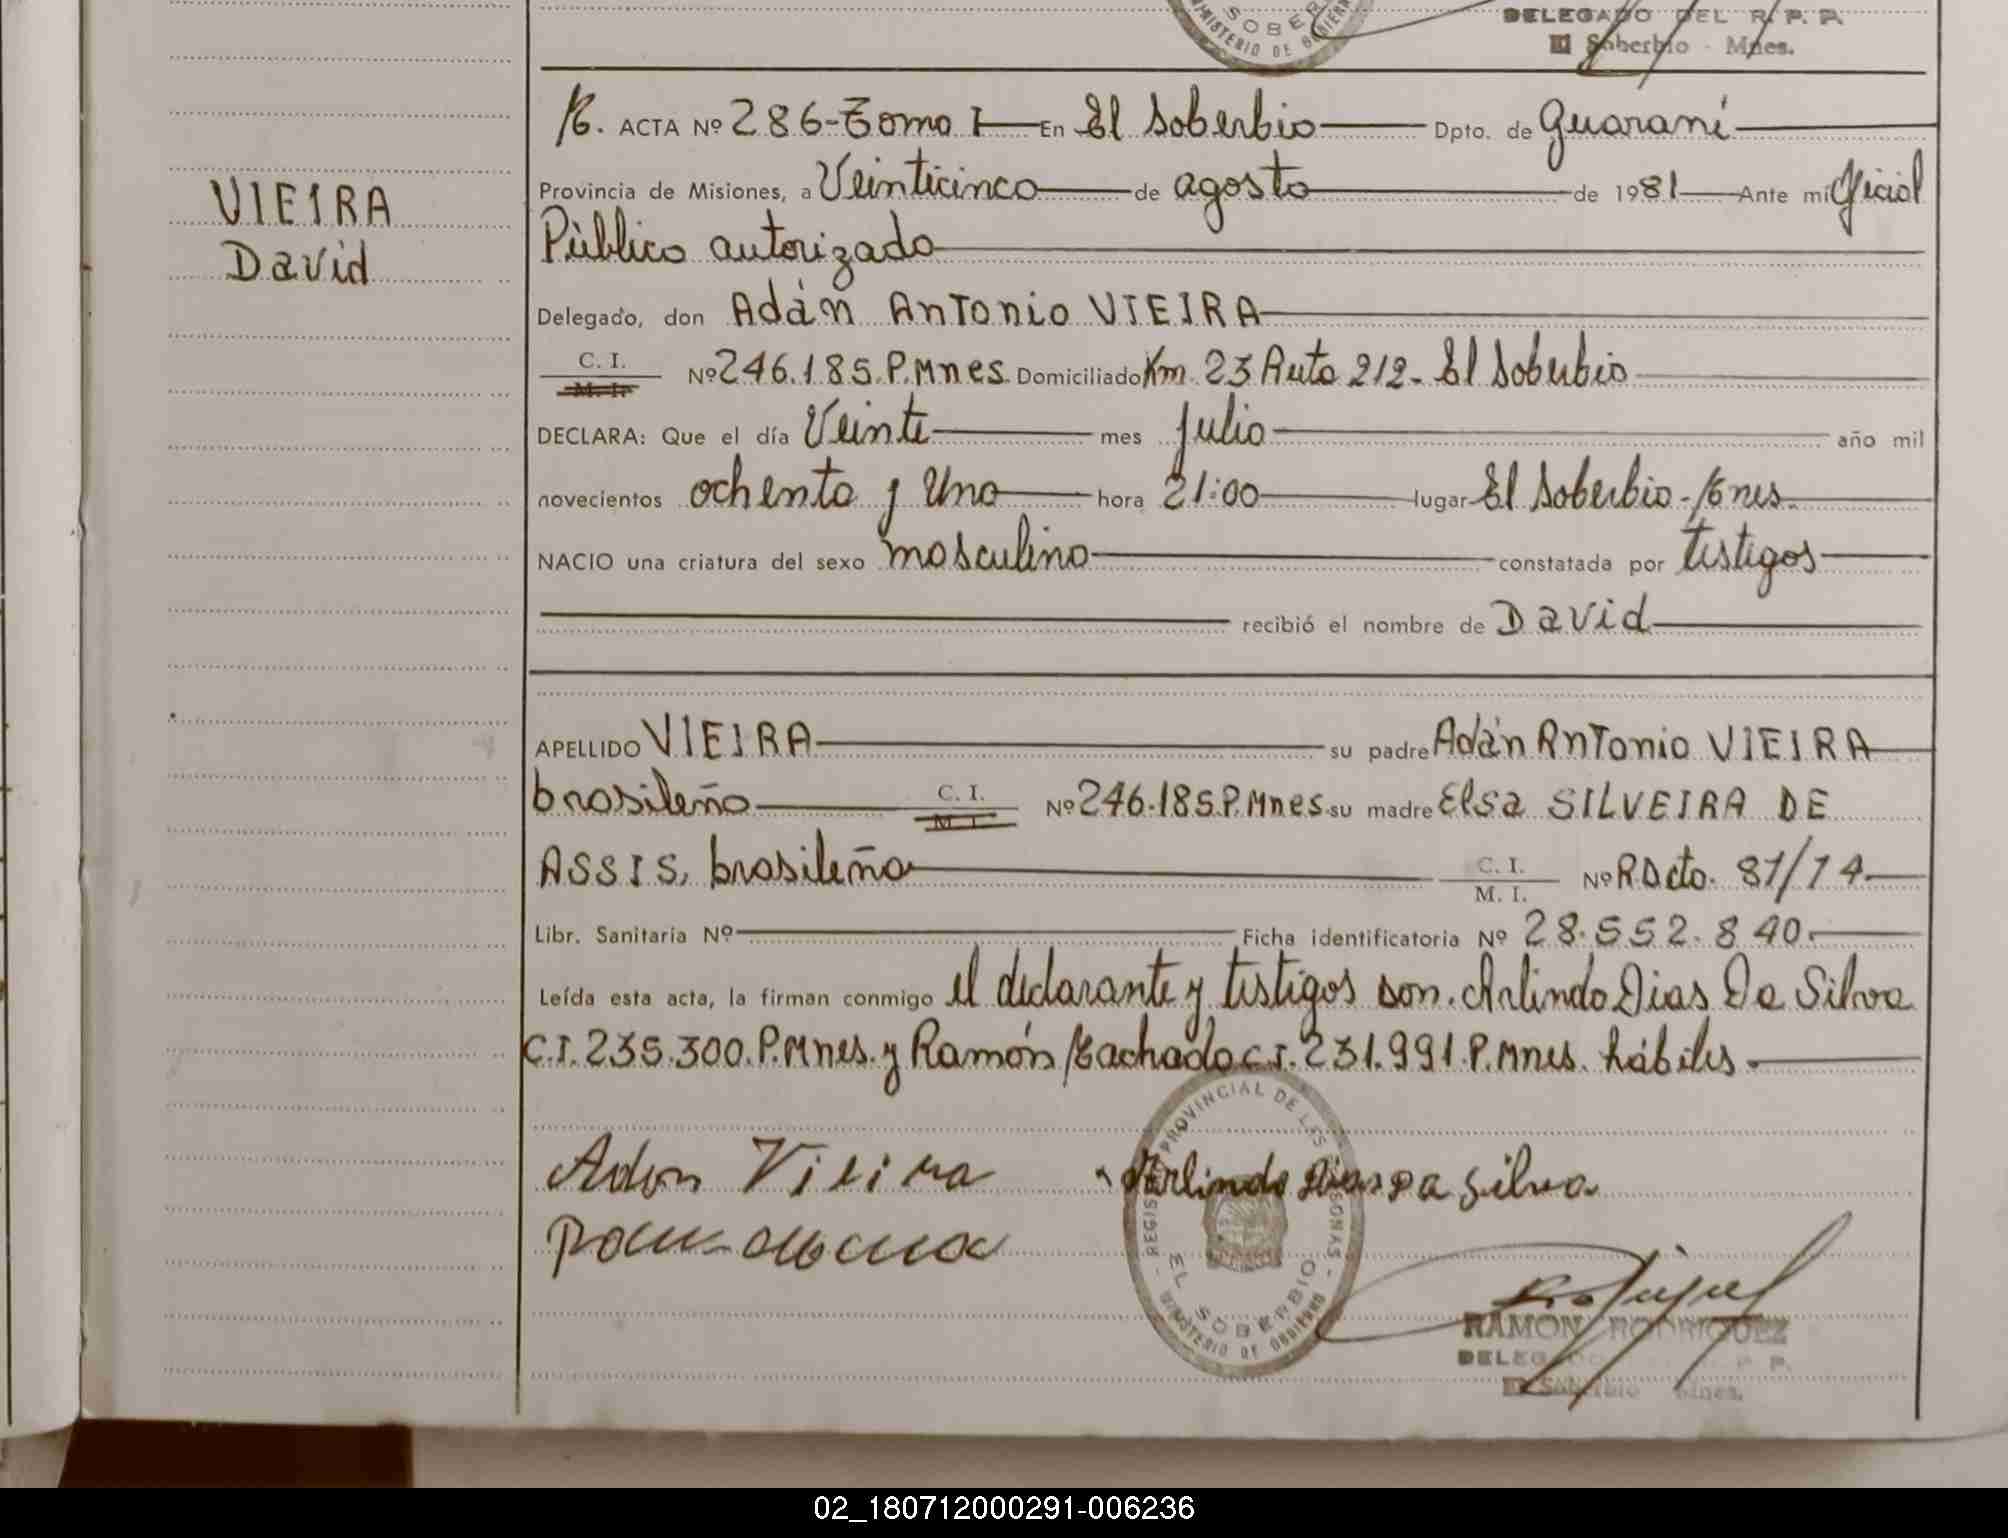 SOBER
MINISTERIO DE GOBIERN
DELEGADO DEL R. P. P.
El Soberbio - Mnes.
VIEIRA
David
M. ACTA Nº 286-Tomo I En El Soberbio Dpto. de Guaraní
Provincia de Misiones, a Veinticinco de agosto de 1981 Ante mi Oficial
Público autorizado
Delegado, don Adán Antonio VIEIRA
C. I.
M. I.
Nº 246.185.P.Mnes. Domiciliado Km. 23 Ruta 212- El Soberbio
DECLARA: Que el día Veinte mes Julio año mil
novecientos ochenta y Uno hora 21:00 lugar El Soberbio-Mnes.
NACIO una criatura del sexo masculino constatada por testigos
recibió el nombre de David
APELLIDO VIEIRA su padre Adán Antonio VIEIRA
brasileño C. I. Nº 246.185.P.Mnes. su madre Elsa SILVEIRA DE
M. I.
ASSIS, brasileña C. I. Nº R.Dcto. 87/74
M. I.
Libr. Sanitaria Nº Ficha identificatoria Nº 28.552.840.
Leída esta acta, la firman conmigo el declarante y testigos son. Arlindo Dias Da Silva
C.I.235.300.P.Mnes. y Ramón Machado C.I.231.991.P.Mnes. hábiles.
Adon Vieira Arlindo Dias Da Silva
REGISTRO PROVINCIAL DE LAS PERSONAS
EL SOBERBIO
MINISTERIO DE GOBIERNO
RAMON RODRIGUEZ
DELEGADO P. P.
El Soberbio Mnes.
02_180712000291-006236